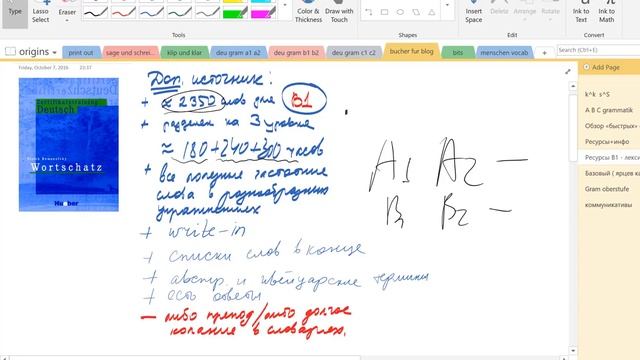 Type
Lasso Select
Eraser
Color & Thickness
Draw with Touch
Insert Space
Ink to Text
Ink to Math
origins
print out
sage und schrei...
klip und klar
deu gram a1 a2
deu gram b1 b2
deu gram c1 c2
bucher fur blog
bits
menschen vocab
Friday, October 7, 2016 23:37
Zertifikatstraining
Deutsch
Wortschatz
Hueber
Доп. источник:
+ ≈ 2350 слов для B1
+ разделен на 3 уровня
≈ 180+240+300 часов
+ все полезные частотные
слова в разнообразных
упражнениях
+ write-in
+ списки слов в конце
+ австр. и швейцарские термины
+ есть ответы
— либо препод/либо долгое
копание в словарях.
A1 A2 —
B1 B2 —
Add Page
k^k s^S
A B C grammatik
Обзор «быстрых»
Ресурсы+инфо
Ресурсы B1 - лекси
Базовый ( ярцев ка
Gram oberstufe
коммуникативы